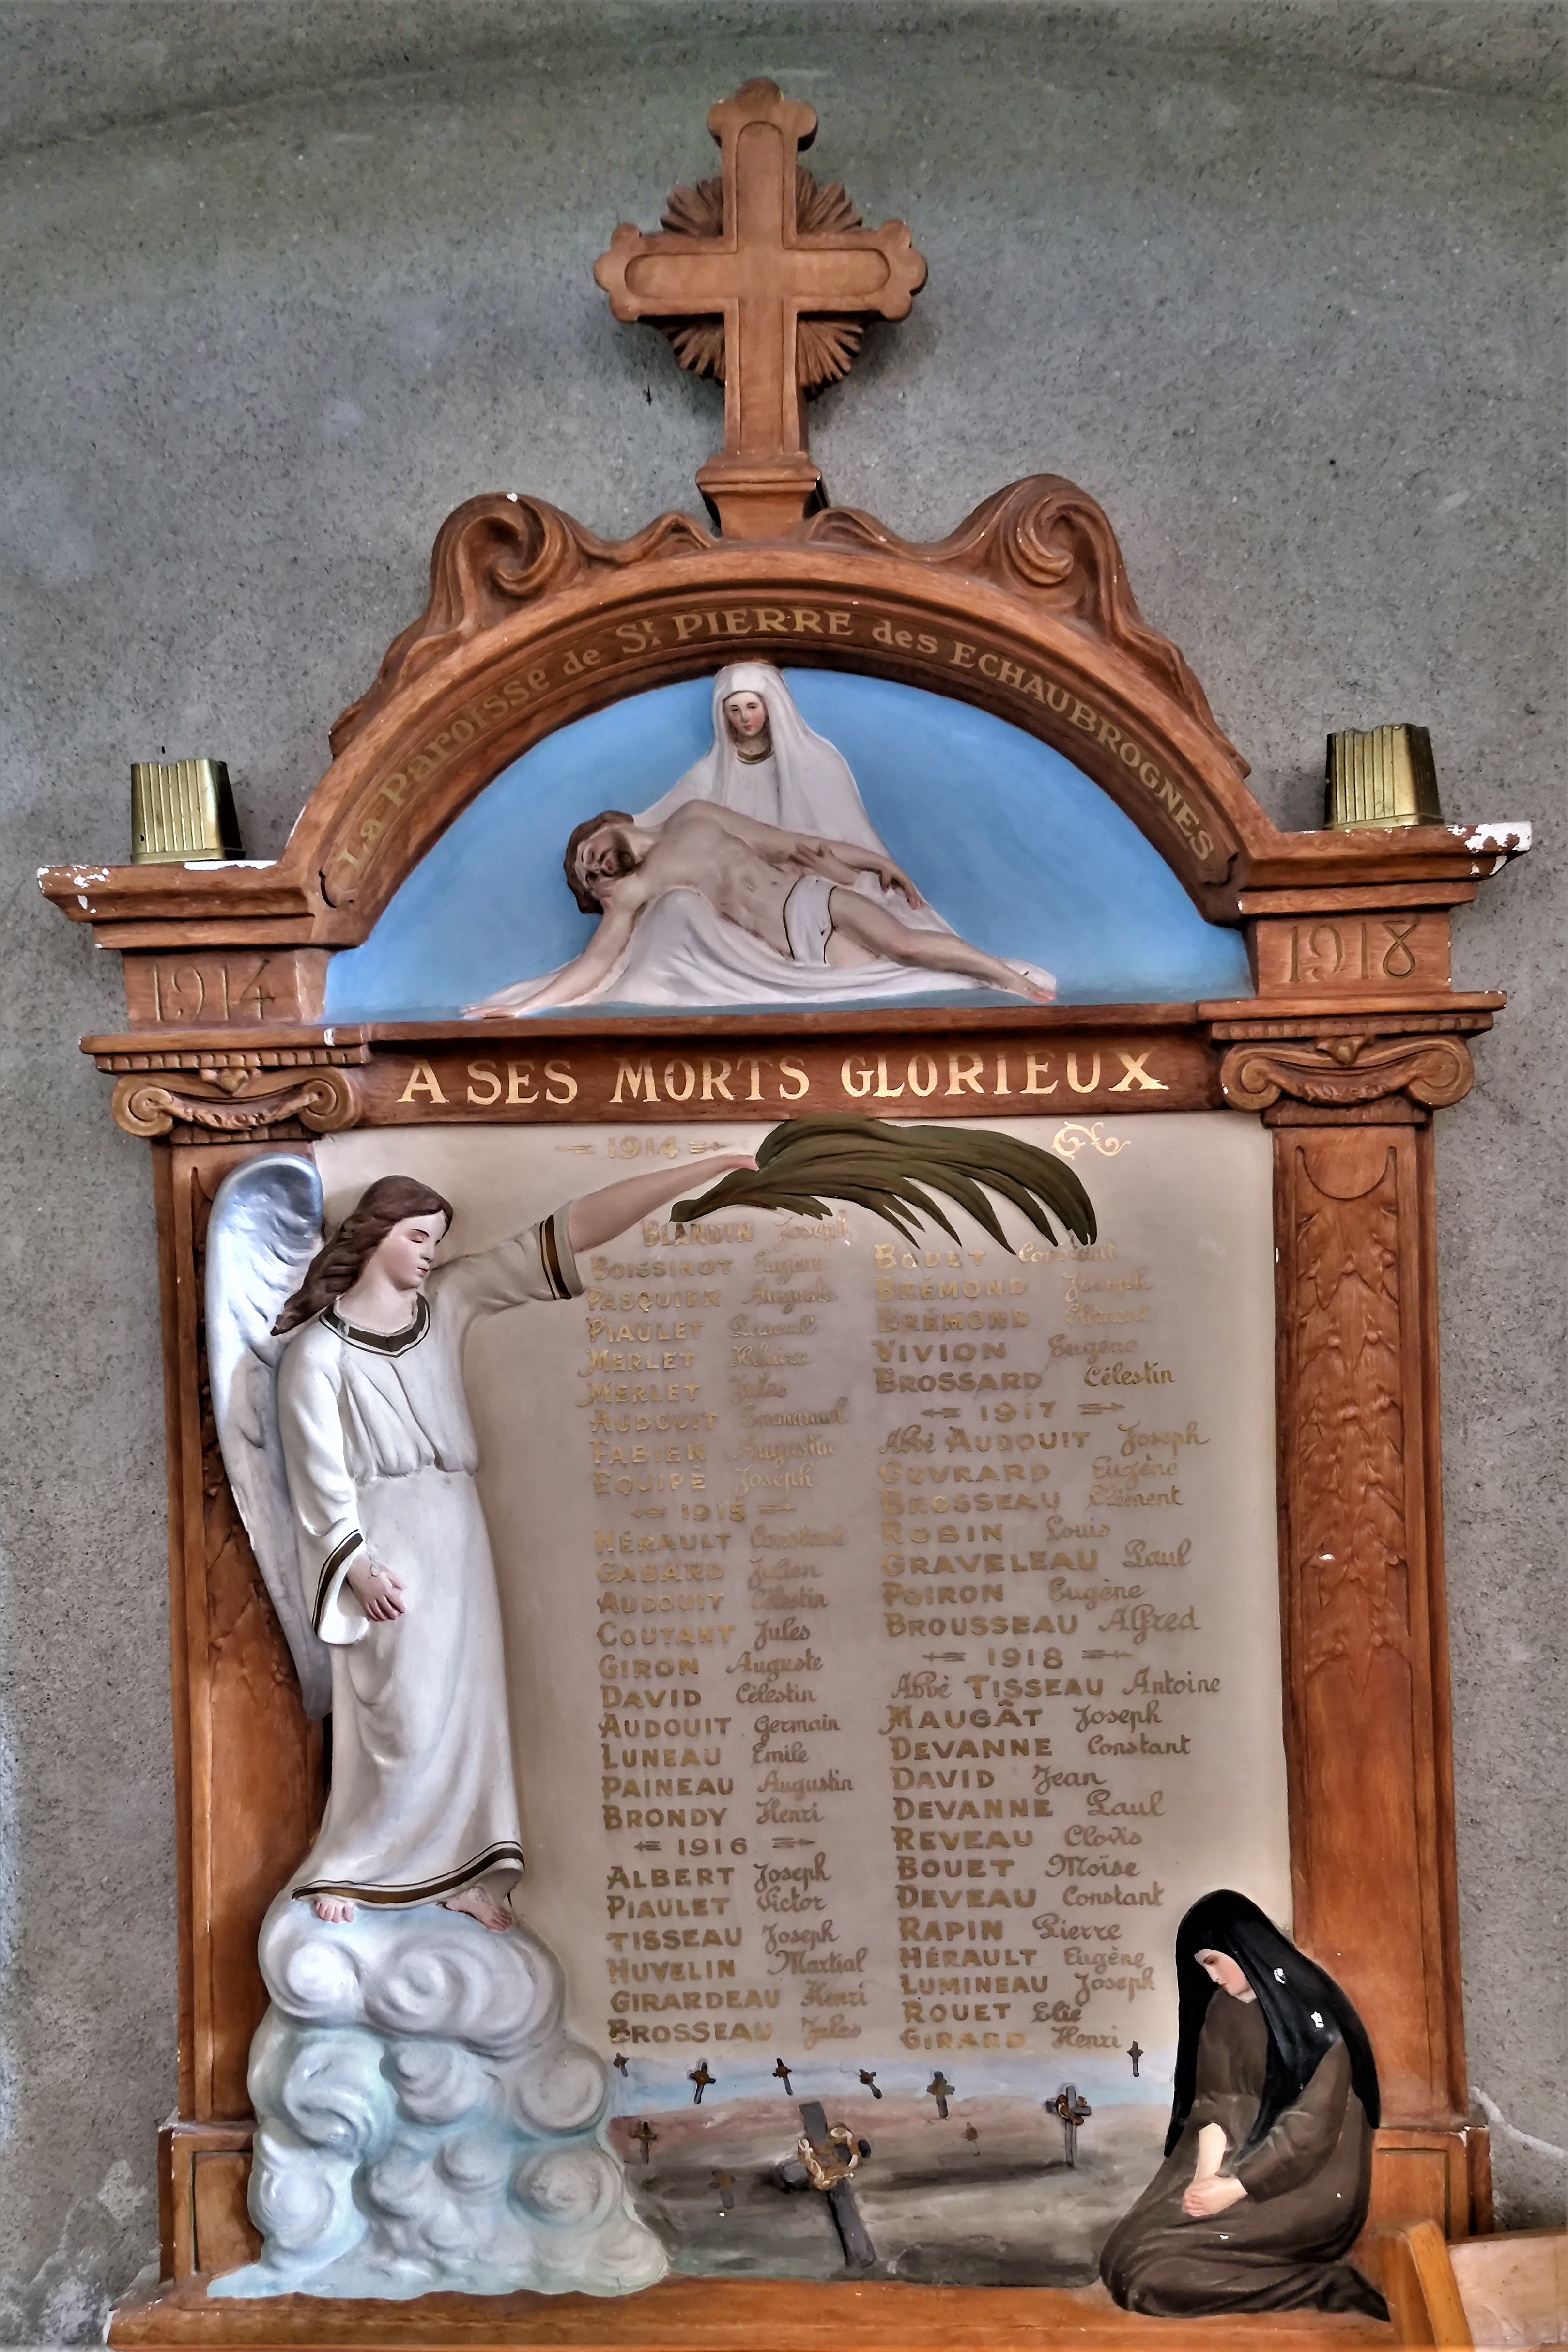 La Paroisse de St PIERRE des ECHAUBROGNES
1914
1918
A SES MORTS GLORIEUX
1914
BLANDIN Joseph
BOISSINOT Eugène
PASQUIER Auguste
PIAULET
MERLET
MERLET Jules
AUDOUIT Emmanuel
FABIEN Augustin
EQUIPÉ Joseph
1915
HÉRAULT Constant
GABARD Julien
AUDOUIT Célestin
COUTANT Jules
GIRON Auguste
DAVID Célestin
AUDOUIT Germain
LUNEAU Emile
PAINEAU Augustin
BRONDY Henri
1916
ALBERT Joseph
PIAULET Victor
TISSEAU Joseph
HUVELIN Martial
GIRARDEAU Henri
BROSSEAU Jules
BODET Constant
BRÉMOND Joseph
BRÉMOND Clément
VIVION Eugène
BROSSARD Célestin
1917
Abbé AUDOUIT Joseph
GUVRARD Eugène
BROSSEAU Clément
ROBIN Louis
GRAVELEAU Paul
POIRON Eugène
BROUSSEAU Alfred
1918
Abbé TISSEAU Antoine
MAUGÂT Joseph
DEVANNE Constant
DAVID Jean
DEVANNE Paul
REVEAU Clovis
BOUET Moïse
DEVEAU Constant
RAPIN Pierre
HÉRAULT Eugène
LUMINEAU Joseph
ROUET Elie
GIRARD Henri